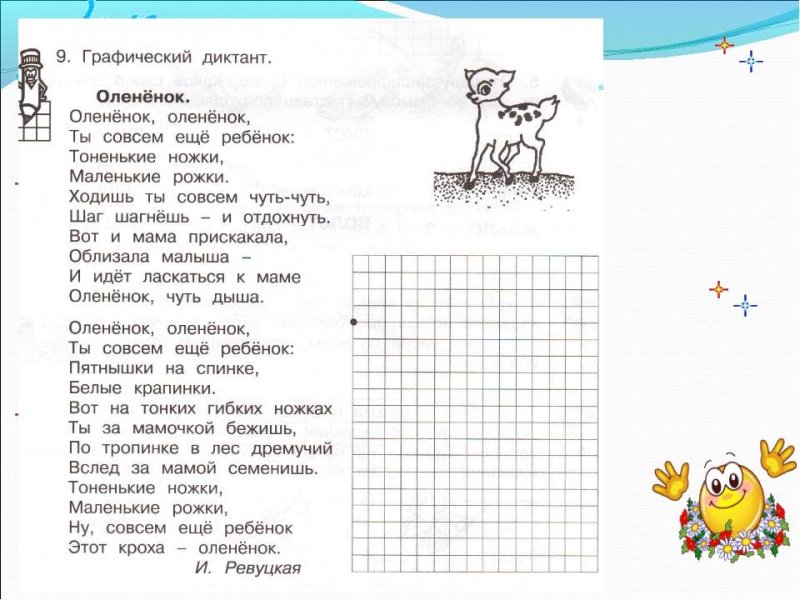 9. Графический диктант.
Оленёнок.
Оленёнок, оленёнок,
Ты совсем ещё ребёнок:
Тоненькие ножки,
Маленькие рожки.
Ходишь ты совсем чуть-чуть,
Шаг шагнёшь – и отдохнуть.
Вот и мама прискакала,
Облизала малыша –
И идёт ласкаться к маме
Оленёнок, чуть дыша.
Оленёнок, оленёнок,
Ты совсем ещё ребёнок:
Пятнышки на спинке,
Белые крапинки.
Вот на тонких гибких ножках
Ты за мамочкой бежишь,
По тропинке в лес дремучий
Вслед за мамой семенишь.
Тоненькие ножки,
Маленькие рожки,
Ну, совсем ещё ребёнок
Этот кроха – оленёнок.
И. Ревуцкая